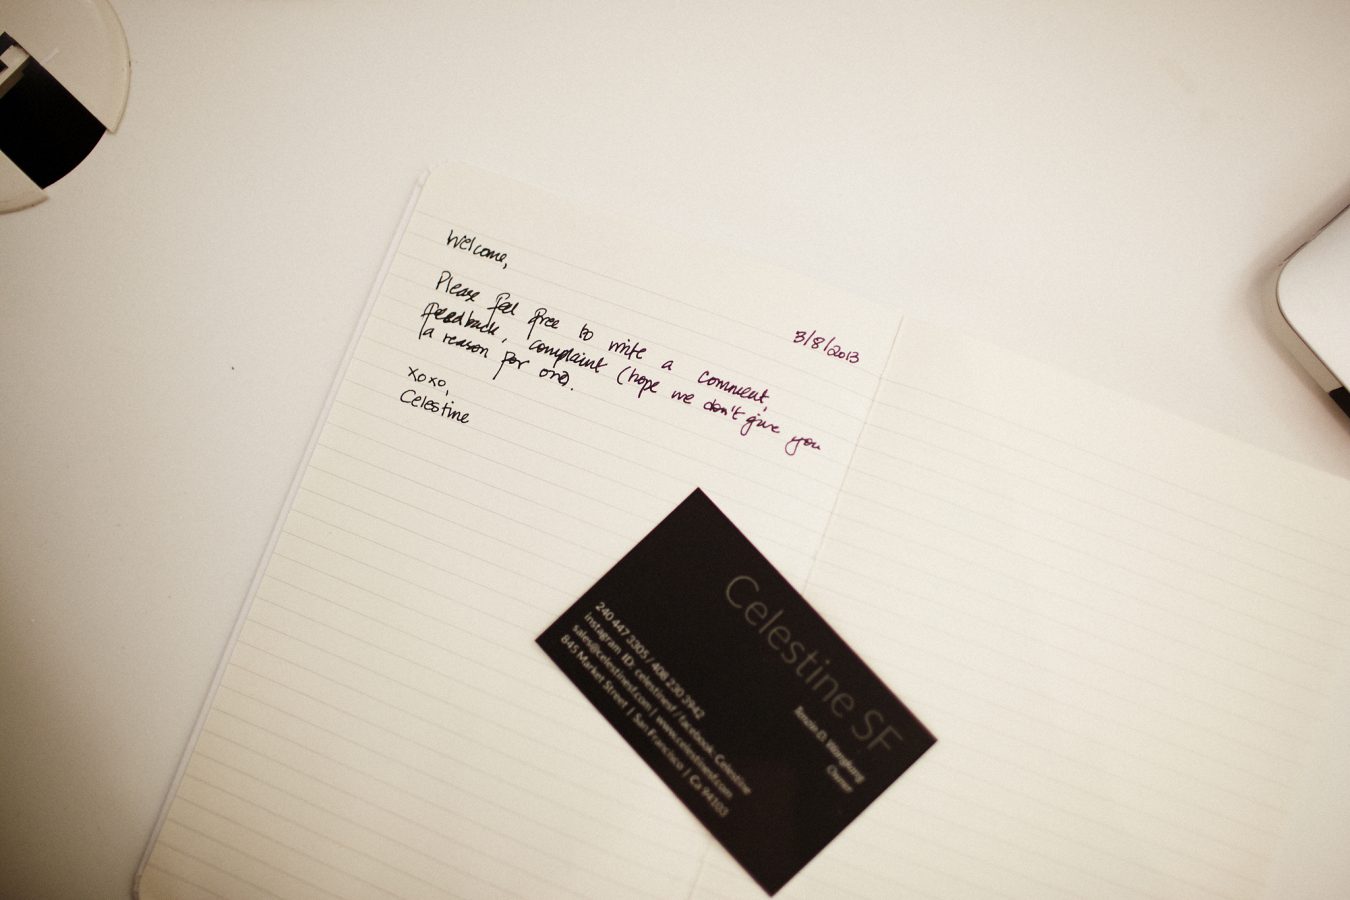 3/8/2013
Welcome,
Please feel free to write a comment,
feedback, complaint (hope we don't give you
a reason for one).
xoxo,
Celestine
Celestine SF
Owner
240 447 3305 / 408 230 3942
instagram ID: celestinesf / facebook: Celestine
sales@celestinesf.com | www.celestinesf.com
845 Market Street | San Francisco | Ca 94103